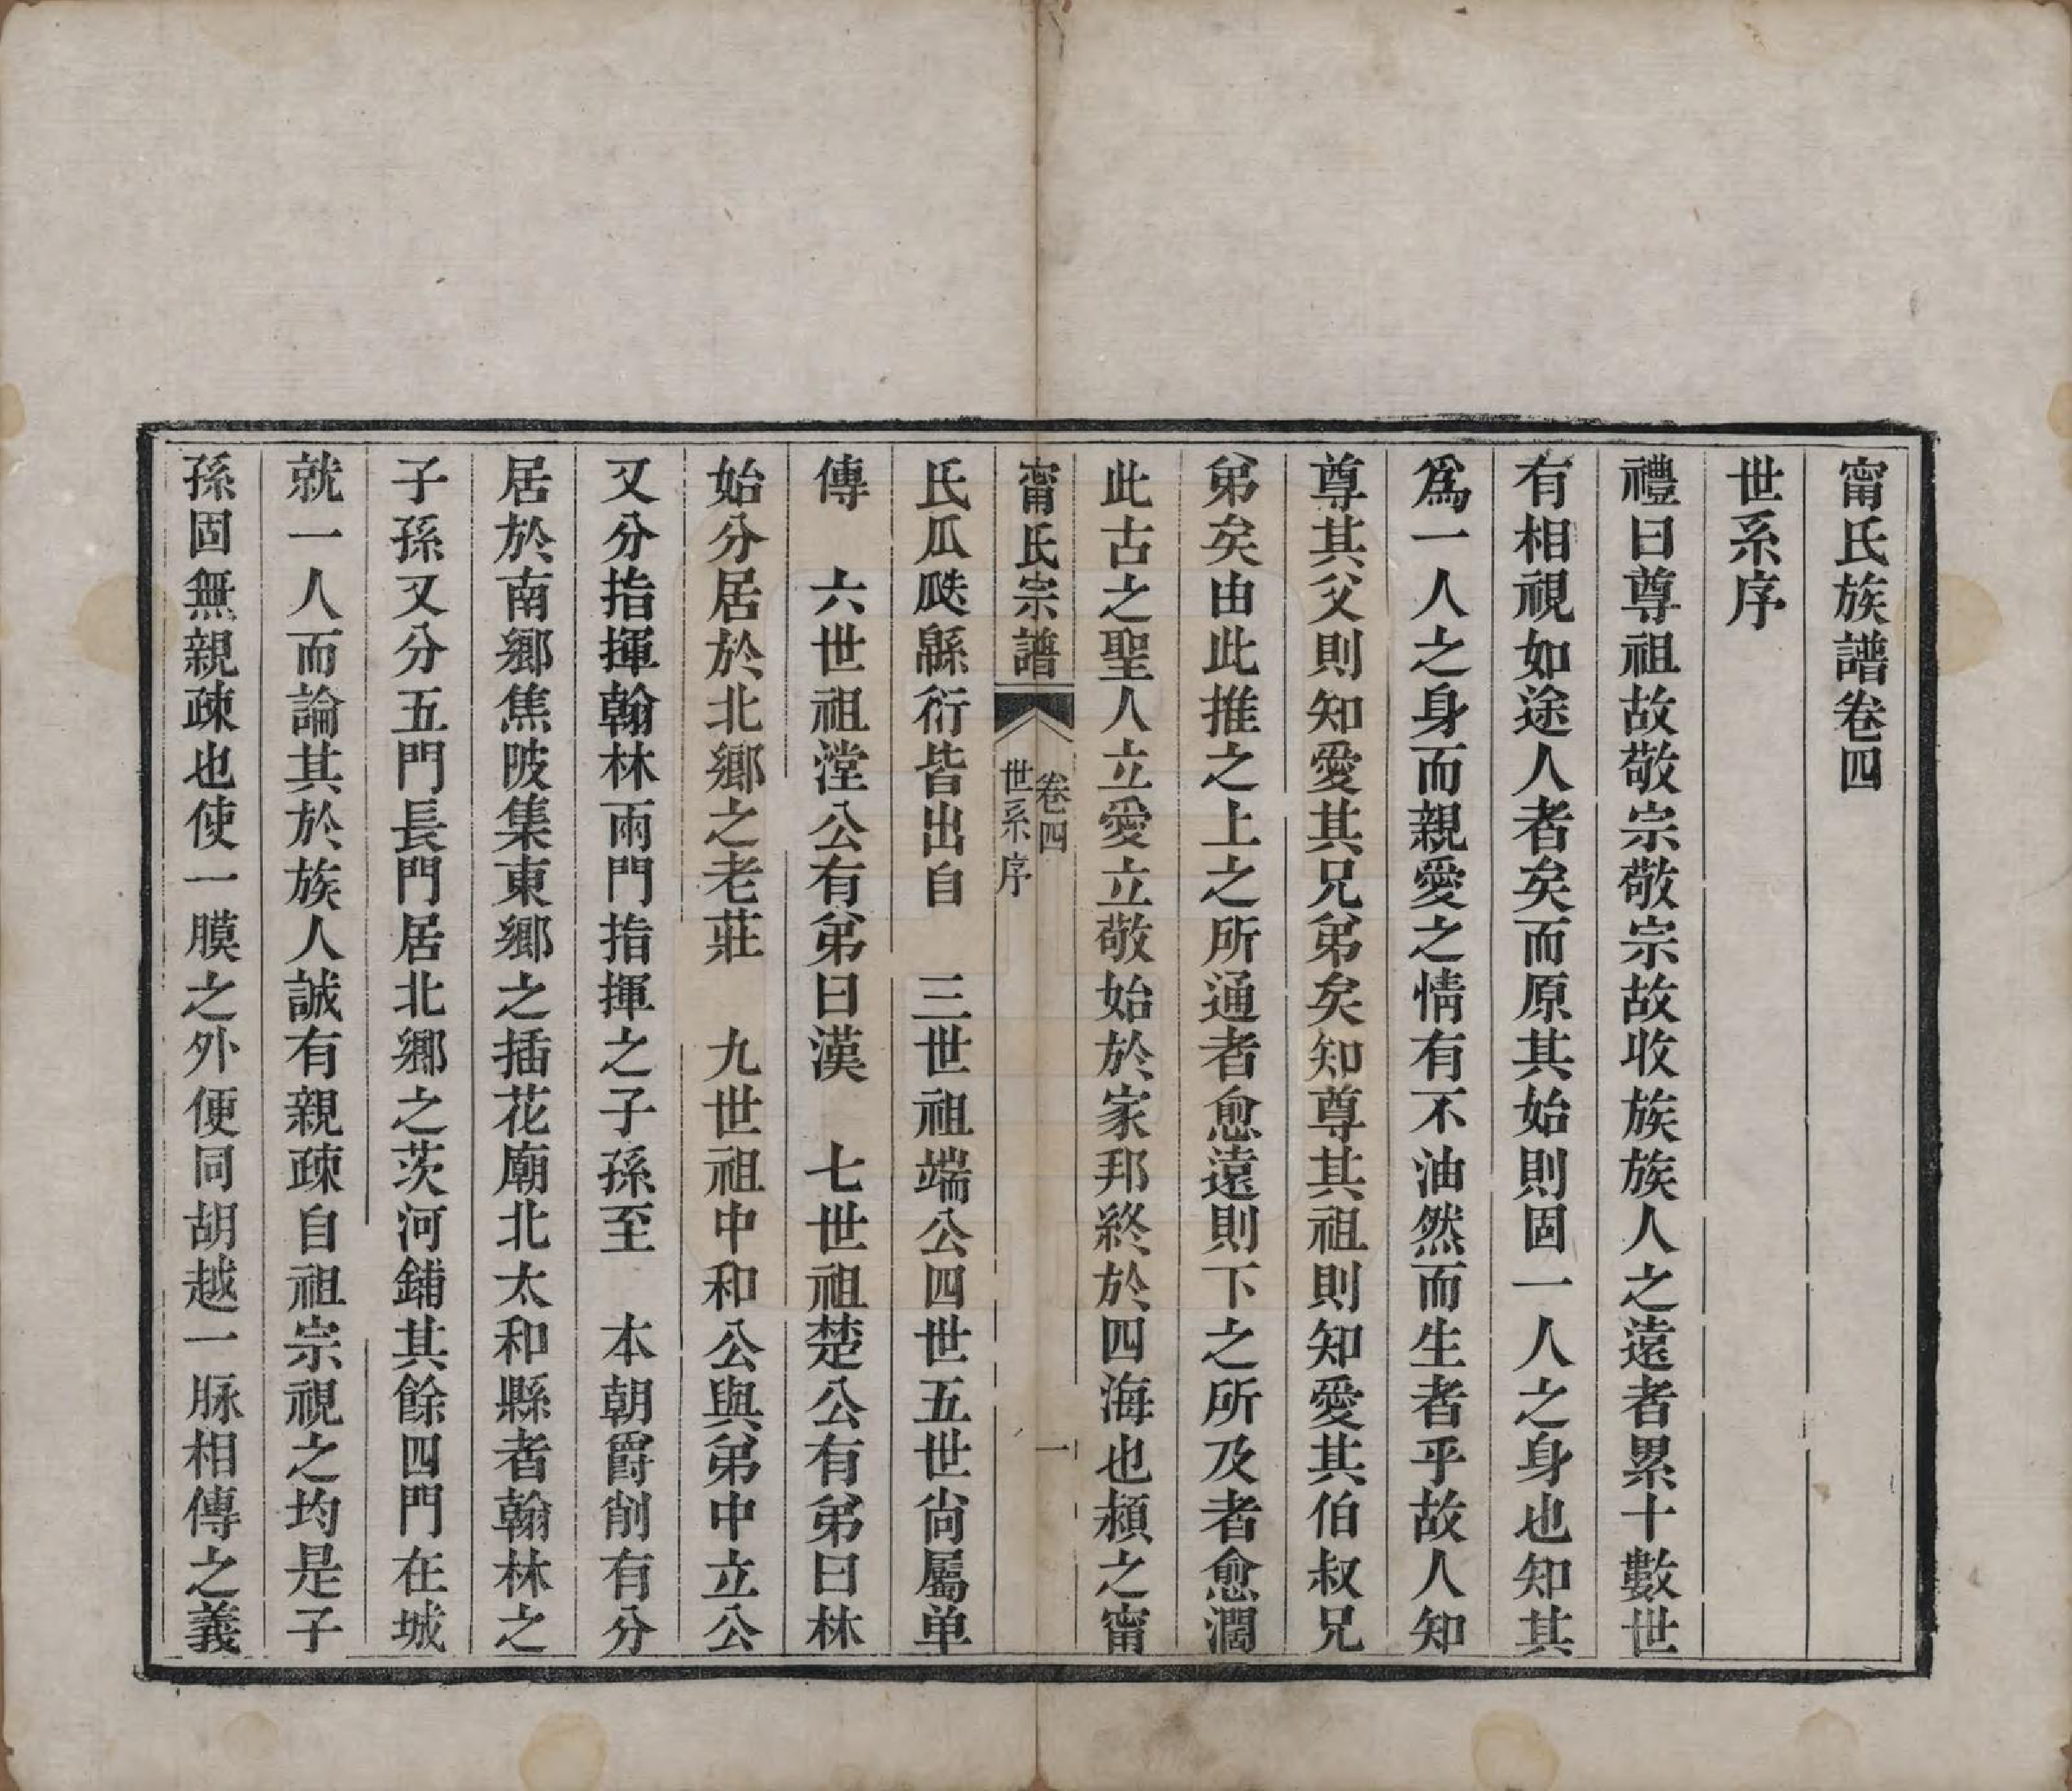 甯氏族譜卷四
世系序
禮曰尊祖故敬宗敬宗故收族族人之遠者累十數世
有相視如途人者矣而原其始則固一人之身也知其
爲一人之身而親愛之情有不油然而生者乎故人知
尊其父則知愛其兄弟矣知尊其祖則知愛其伯叔兄
弟矣由此推之上之所通者愈遠則下之所及者愈濶
此古之聖人立愛立敬始於家邦終於四海也潁之甯
甯氏宗譜
卷四
世系序
一
氏瓜瓞緜衍皆出自　三世祖端公四世五世尙屬单
傳　六世祖漟公有弟曰漢　七世祖楚公有弟曰林
始分居於北鄉之老莊　九世祖中和公與弟中立公
又分指揮翰林兩門指揮之子孫至　本朝爵削有分
居於南鄉焦陂集東鄉之插花廟北太和縣者翰林之
子孫又分五門長門居北鄉之茨河鋪其餘四門在城
就一人而論其於族人誠有親疎自祖宗視之均是子
孫固無親疎也使一膜之外便同胡越一脉相傳之義